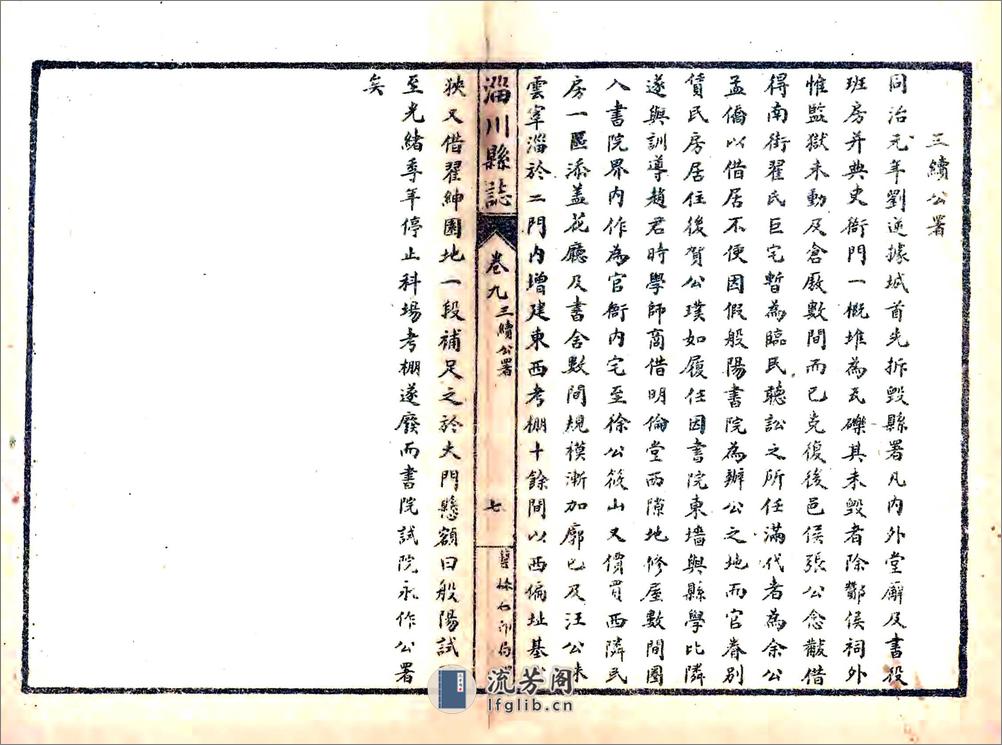 三續公署
同治元年劉逆據城首先拆毀縣署凡內外堂廨及書役
班房并典史衙門一概堆為瓦礫其未毀者除酇侯祠外
惟監獄未動及倉廒數間而已克復後邑侯張公念黻借
得南街翟氏巨宅暫為臨民聽訟之所任滿代者為余公
孟僑以借居不便因假般陽書院為辦公之地而官眷別
賃民房居住後賀公璞如履任因書院東墻與縣學比隣
遂與訓導趙君時學師商借明倫堂西隙地修屋數間圈
入書院界內作為官衙內宅至徐公筱山又價買西隣民
房一區添蓋花廳及書舍數間規模漸加廓已及汪公来
雲宰淄於二門內增建東西考棚十餘間以西偏址基
淄川縣誌
卷九 三續公署
七
藝林石印局
狹又借翟紳園地一段補足之於大門懸額曰般陽試
至光緒季年停止科場考棚遂廢而書院試院永作公署
矣
流芳阁
lfglib.cn